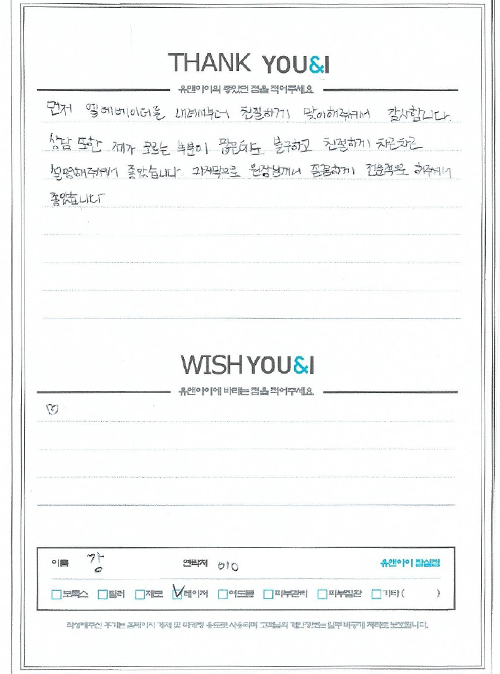 THANK YOU&I
유앤아이의 좋았던 점을 적어주세요
먼저 엘레베이터를 내려서부터 친절하게 맞이해주셔서 감사합니다.
상담 또한 제가 모르는 부분이 많은데도 불구하고 친절하게 차근차근
설명해주셔서 좋았습니다 마지막으로 원장님께서 꼼꼼하게 전문적으로 해주셔서
좋았습니다
WISH YOU&I
유앤아이에 바라는 점을 적어주세요
♡
이름 강 연락처 010 유앤아이 잠실점
보톡스 필러 제모 레이저 여드름 피부관리 피부질환 기타 ( )
작성해주신 후기는 홈페이지 게재 및 마케팅 용도로 사용되며 고객님의 개인정보는 일부 비공개 처리로 보호됩니다.